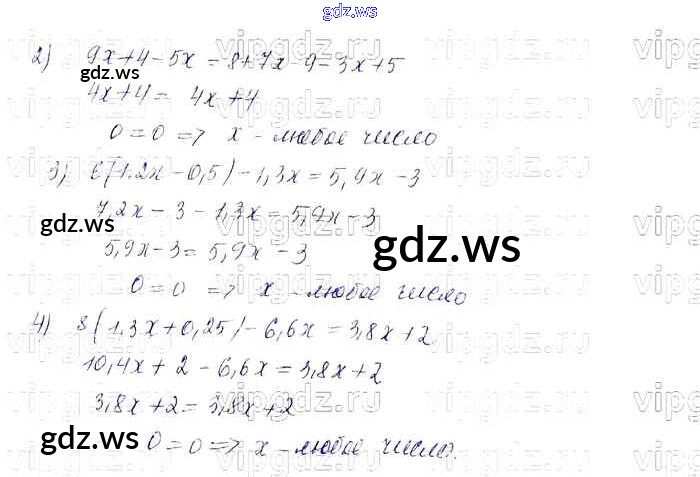 gdz.ws
2) 9x+4-5x = 8+7x-9-3x+5
4x+4 = 4x+4
0=0 => x - любое число
3) 6(1.2x-0,5)-1,3x=5,9x-3
7,2x-3-1,3x=5,9x-3
5,9x-3=5,9x-3
0=0 => x - любое число
4) 8(1.3x+0,25)-6,6x=3,8x+2
10,4x+2-6,6x=3,8x+2
3,8x+2=3,8x+2
0=0 => x - любое число.
gdz.ws
gdz.ws
gdz.ws
gdz.ws
vipgdz.ru